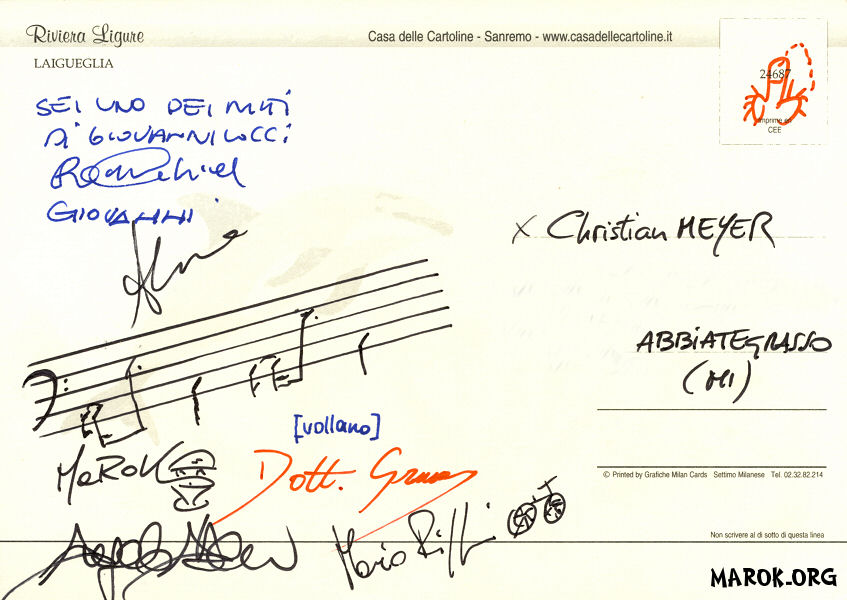 Riviera Ligure
LAIGUEGLIA
Casa delle Cartoline - Sanremo - www.casadellecartoline.it
24687
Imprimé en
CEE
SEI UNO DEI MITI
DI GIOVANNI LOCCI
GIOVANNI
x Christian MEYER
ABBIATEGRASSO
(MI)
[vollano]
MaROK
Dott. Gruus
Mario Riffini
© Printed by Grafiche Milan Cards Settimo Milanese Tel. 02.32.82.214
Non scrivere al di sotto di questa linea
MAROK.ORG